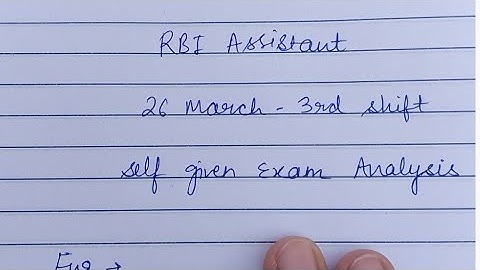 RBI Assistant
26 March - 3rd shift
self given Exam Analysis
Eng →